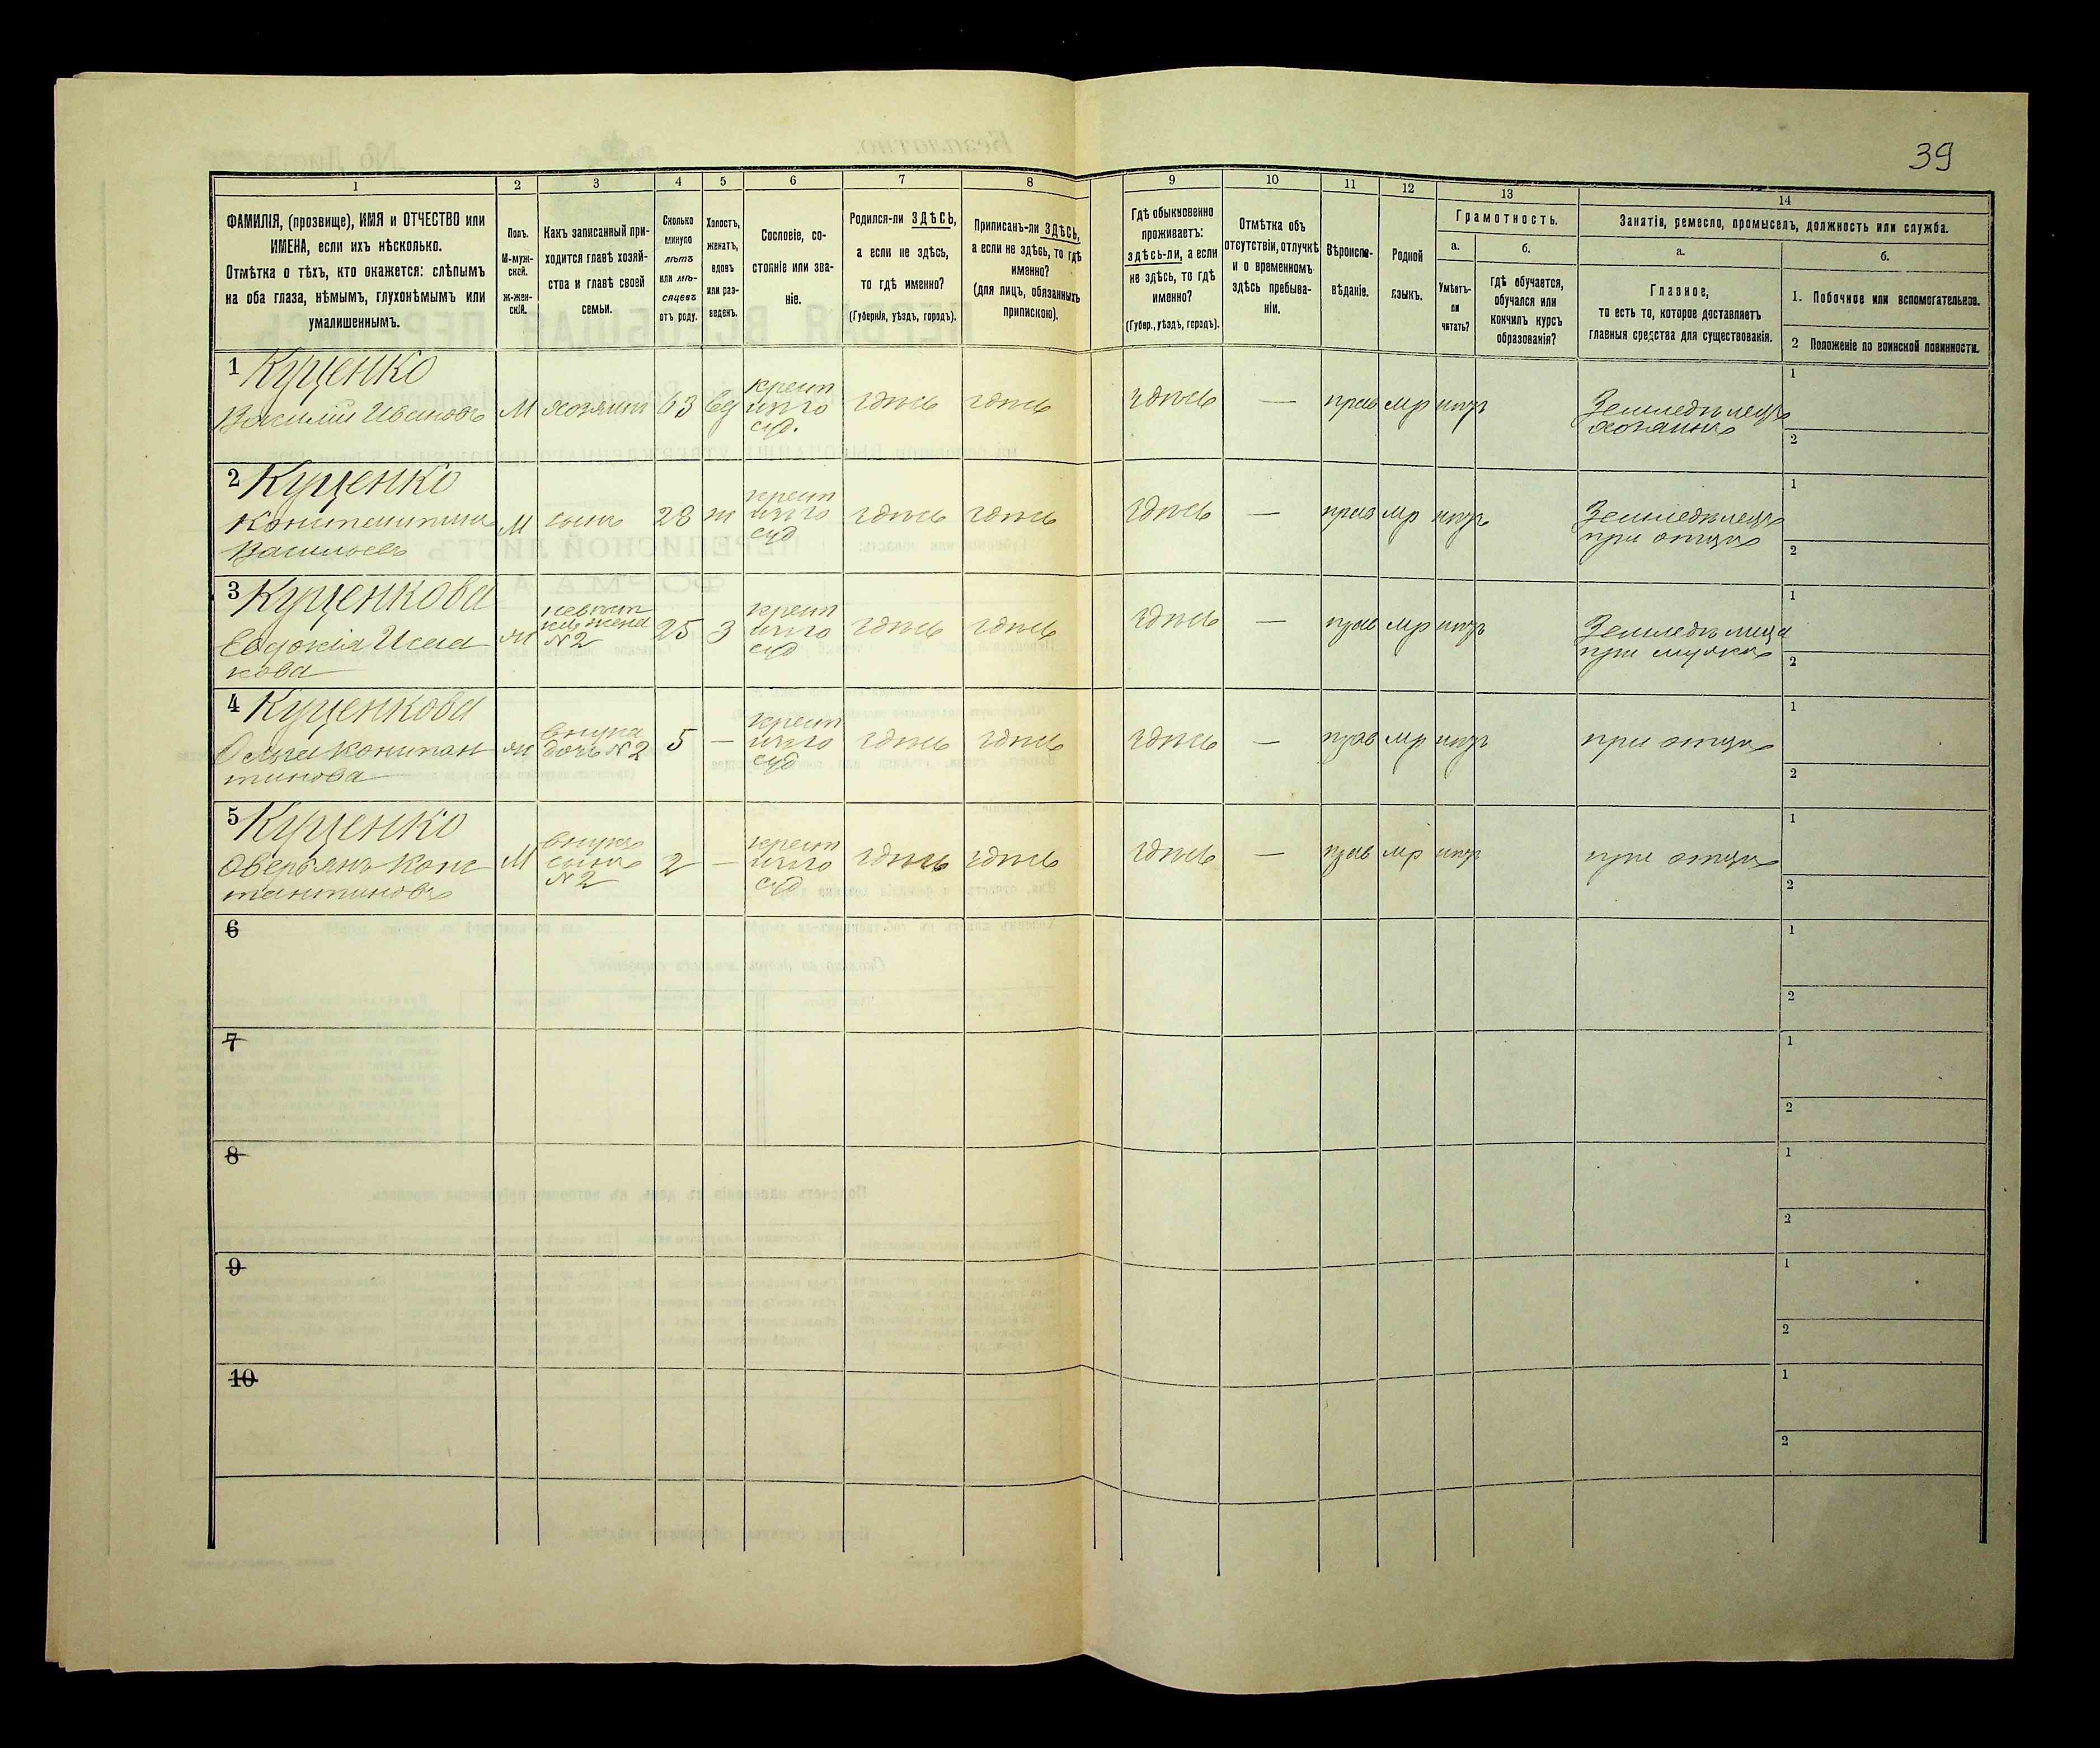 39
1 2 3 4 5 6 7 8 9 10 11 12 13 14
ФАМИЛІЯ, (прозвище), ИМЯ и ОТЧЕСТВО или
ИМЕНА, если ихъ нѣсколько.
Отмѣтка о тѣхъ, кто окажется: слѣпымъ
на оба глаза, нѣмымъ, глухонѣмымъ или
умалишеннымъ.
Полъ.
М-муж-
ской.
ж-жен-
скій.
Какъ записанный при-
ходится главѣ хозяй-
ства и главѣ своей
семьи.
Сколько
минуло
лѣтъ
или мѣ-
сяцевъ
отъ роду.
Холостъ,
женатъ,
вдовъ
или раз-
веденъ.
Сословіе, со-
стояніе или зва-
ніе.
Родился-ли ЗДѢСЬ,
а если не здѣсь,
то гдѣ именно?
(Губернія, уѣздъ, городъ).
Приписанъ-ли ЗДѢСЬ,
а если не здѣсь, то гдѣ
именно?
(для лицъ, обязанныхъ
припискою).
Гдѣ обыкновенно
проживаетъ:
здѣсь-ли, а если
не здѣсь, то гдѣ
именно?
(Губер., уѣздъ, городъ).
Отмѣтка объ
отсутствіи, отлучкѣ
и о временномъ
здѣсь пребыва-
ніи.
Вѣроиспо-
вѣданіе.
Родной
языкъ.
Грамотность.
а.
Умѣетъ-
ли
читать?
б.
гдѣ обучается,
обучался или
кончилъ курсъ
образованія?
Занятія, ремесло, промыселъ, должность или служба.
а.
Главное,
то есть то, которое доставляетъ
главныя средства для существованія.
б.
1. Побочное или вспомогательное.
2 Положеніе по воинской повинности.
1 Куценко
Василий Ивановъ М хозяинъ 63 вд здѣсь здѣсь здѣсь — прав мр нѣтъ
крест
суд.
Земледѣлецъ
хозяинъ
1
2
2 Куценко
Константинъ
Васильевъ
М сынъ 28 ж здѣсь здѣсь здѣсь — прав мр нѣтъ
крест
суд
Земледѣлецъ
при отцѣ
1
2
3 Куценкова
Евдокія Исаа
кова
ж невѣст
ка жена
№2
25 З здѣсь здѣсь здѣсь — прав мр нѣтъ
крест
суд
при мужѣ
1
2
4 Куценкова
Ольга Констан
тинова
ж внука
дочь №2 5 — здѣсь здѣсь здѣсь — прав мр нѣтъ
крест
суд
при отцѣ
1
2
5 Куценко
Оверьянъ Конс
тантиновъ
М внукъ
сынъ
№2
2 — здѣсь здѣсь здѣсь — прав мр нѣтъ
крест
суд
при отцѣ
1
2
6
1
2
7
1
2
8
1
2
9
1
2
10
1
2